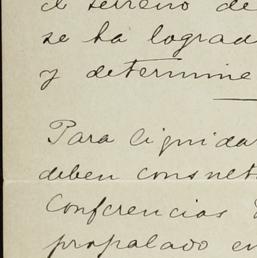 el terreno de
se ha lograd
y determine
Para liquida
deben consult
Conferencias
propalado en